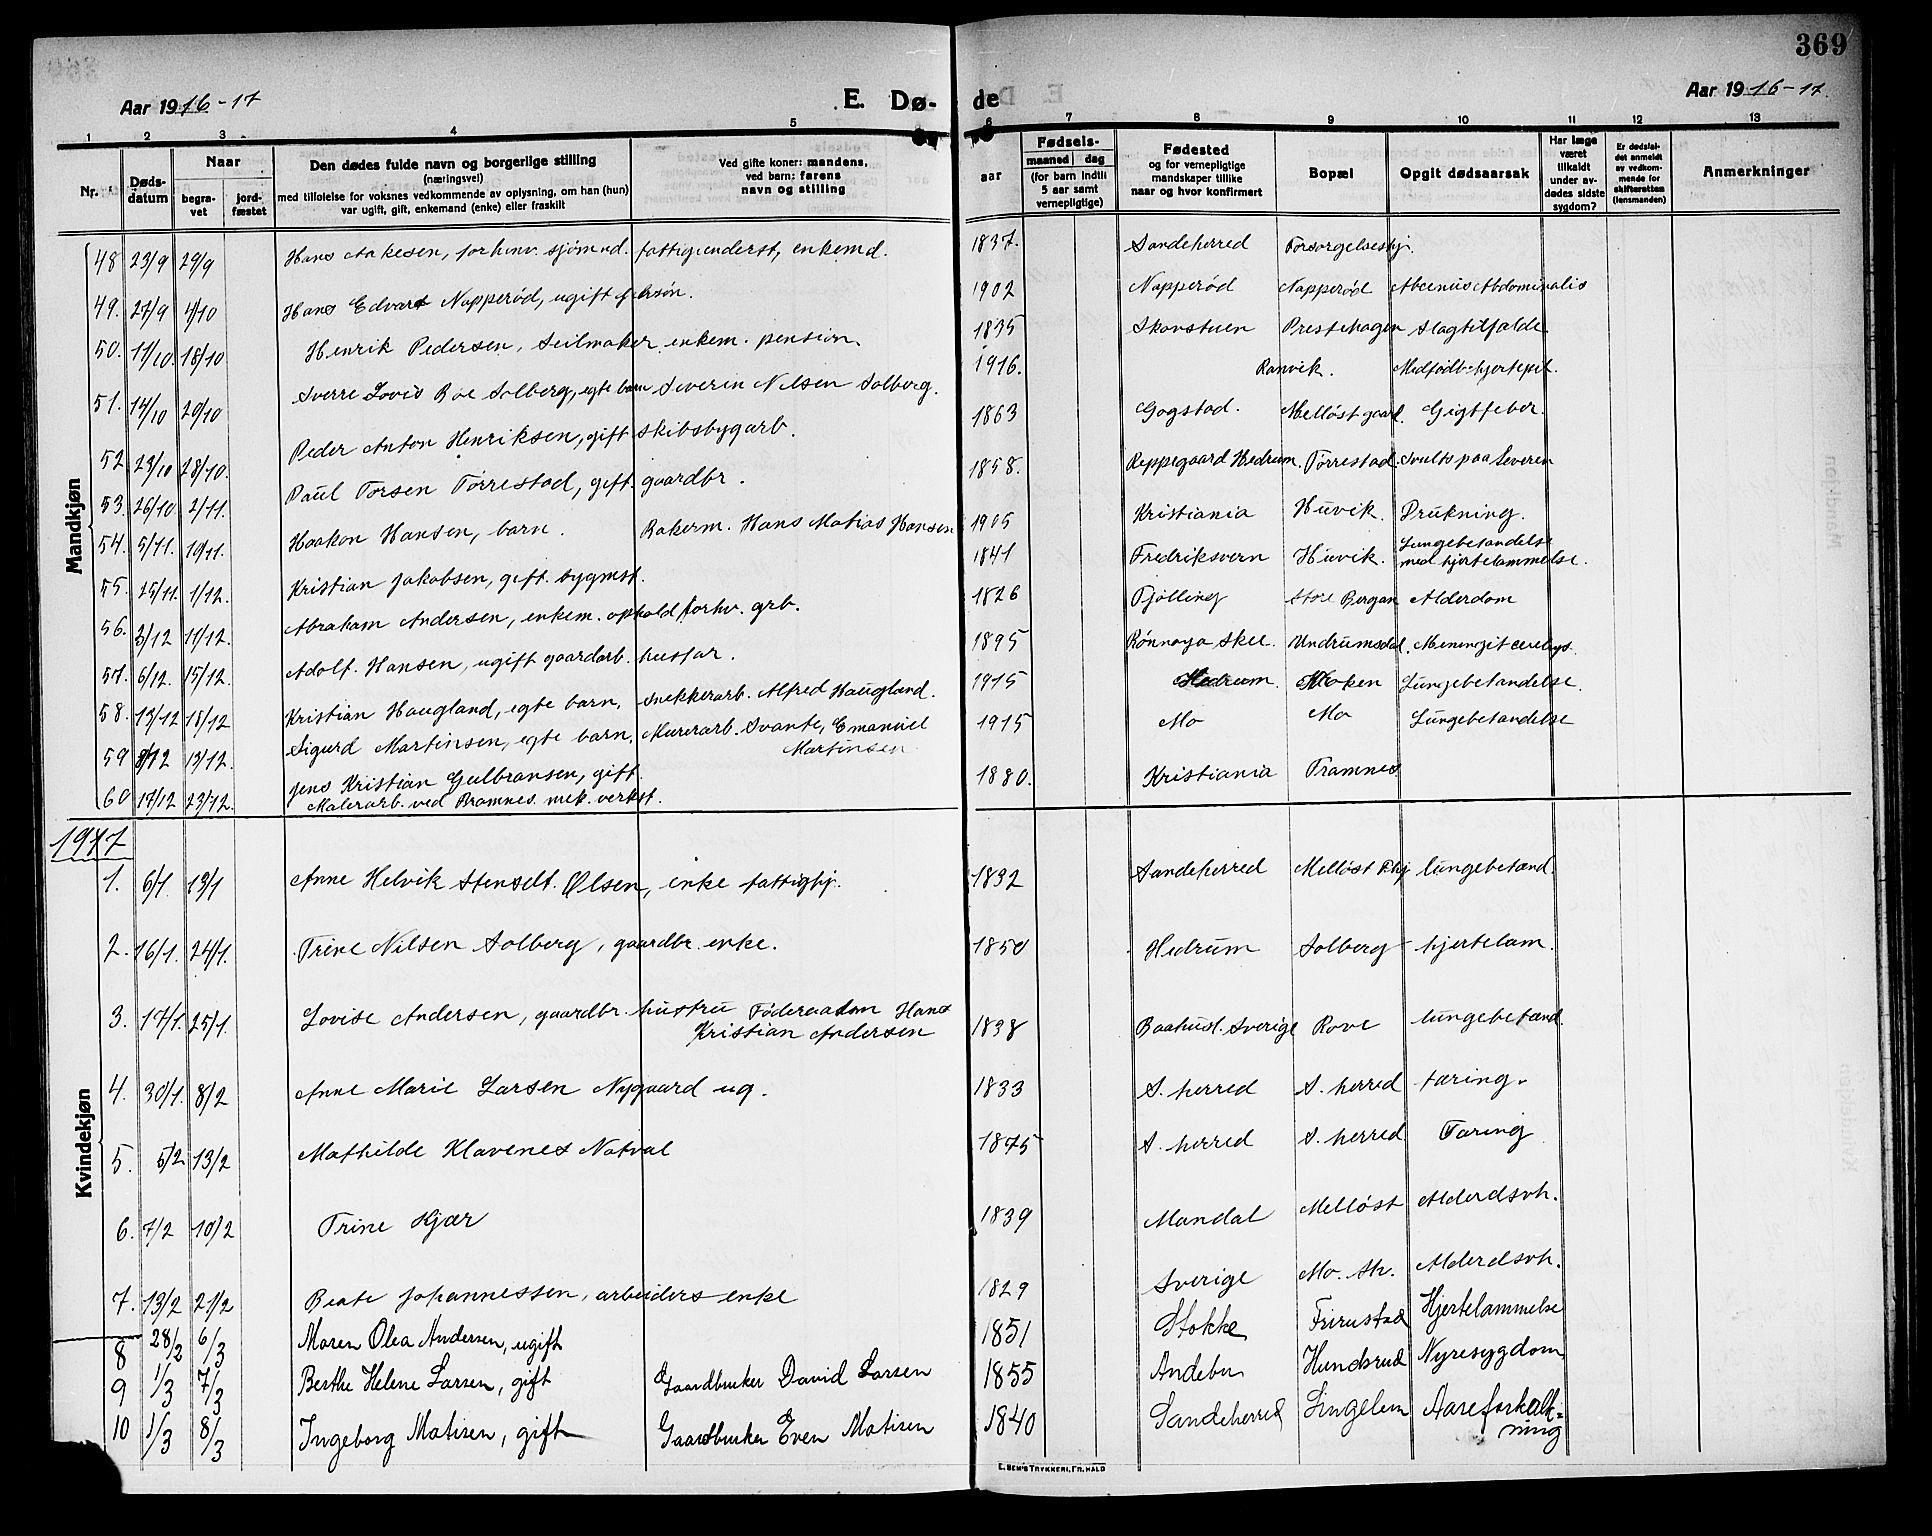 369
Aar 1916-17
E. Dø- de
Aar 1916-17.
1 2 3 4 5 6 7 8 9 10 11 12 13
Nr.
Døds-datum
Naar
begra-vet
jord-fæstet
Den dødes fulde navn og borgerlige stilling
(næringsvei)
med tilføielse for voksnes vedkommende av oplysning, om han (hun)
var ugift, gift, enkemand (enke) eller fraskilt
Ved gifte koner: mandens,
ved barn: farens
navn og stilling
Fødsels-
aar
maaned dag
(for barn indtil
5 aar samt
vernepligtige)
Fødested
og for vernepligtige
mandskaper tillike
naar og hvor konfirmert
Bopæl
Opgit dødsaarsak
Har læge
været
tilkaldt
under av-
dødes sidste
sygdom?
Er dødsfal-
det anmeldt
av vedkom-
mende for
skifteretten
(lensmanden)
Anmerkninger
Mandkjøn
48 23/9 29/9 Hans Aakesen, forhenv. sjømnd. fattigunderst, enkemd. 1837. Sandeherred Forsørgelseshj.
49. 27/9 4/10 Hans Edvart Napperød, ugift 1902 Napperød Napperød Abdominalis
50. 11/10 18/10 Henrik Pedersen, Seilmaker enkem. pension 1835 Skorstuen Prestehagen Slagtilfælde
51. 14/10 20/10 Sverre Lovis Boe Solberg, egte barn Severin Nilsen Solberg. 1916. Ranvik. Medfødt hjertefeil.
52 23/10 28/10. Peder Anton Henriksen, gift skibsbygarb. 1863 Gogstad. Melløst gaard. Gigtfeber.
53. 26/10 2/11. Paul Torsen Tørrestad, gift. gaardbr. 1858. Reppegaard Hedrum. Tørrestad. Svulst paa Leveren
54. 5/11. 10/11. Haakon Hansen, barn. Bakerm. Hans Matias Hansen 1905 Kristiania Huvik. Drukning.
55. 25/11. 1/12. Kristian Jakobsen, gift. bygmst. 1841 Fredriksvern Huvik. Lungebetændelse
med hjertelammelse.
56. 3/12 11/12. Abraham Andersen, enkem. ophold forhv. grb. 1826 Tjølling Store Bergan Alderdom
57. 6/12. 15/12. Adolf. Hansen, ugift gaardarb. husfar. 1895 Rønnaya Skee Undrumsdal. Meningit cerebrys.
58. 13/12 18/12 Kristian Haugland, egte barn, Snekkerarb. Alfred Haugland. 1915 Hedrum. Moken Lungebetændelse.
59 8/12 13/12. Sigurd Martinsen, egte barn. Murerarb. Svante, Emanuel
Martinsen 1915 Mo Mo Lungebetændelse
60 17/12 23/12. Jens Kristian Gulbransen, gift.
Malerarb. ved Framnes mek. verkst. 1880. Kristiania Framnes
1917
Kvindekjøn
1. 6/1. 13/1 Anne Helvik Stensdt. Olsen, enke fattighj. 1832 Sandeherred Melløst F.hj lungebetænd.
2. 16/1. 24/1. Trine Nilsen Solberg, gaardbr. enke. 1850 Hedrum Solberg hjertelam.
3. 17/1. 25/1. Lovise Andersen, gaardbr. hustru Føderaadsm Hans
Kristian Andersen 1838 Baahusl. Sverige Rove lungebetænd.
4. 30/1. 8/2 Anne Marie Larsen Nygaard ug. 1833 S. herred S. herred tæring.
5. 5/2 13/2 Mathilde Klavenes Natval 1875 S. herred S. herred Tæring
6. 7/2 10/2 Trine Kjær 1839 Mandal Melløst Alderdsvh.
7. 13/2 21/2 Beate Johannessen, arbeiders enke 1829 Sverige Mo. Sk. Alderdsvh.
8 28/2 6/3 Maren Olea Andersen, ugift 1851 Stokke Frirustad Hjertelammelse
9 1/3 7/3 Berthe Helene Larsen, gift Gaardbruker David Larsen 1855 Andebu Hundsrud Nyresygdom
10 1/3 8/3 Ingeborg Matisen, gift Gaardbruker Even Matisen 1840 Sandeherred Lingelem Aareforkalk-
ning
E. SEM'S TRYKKERI, FR.HALD